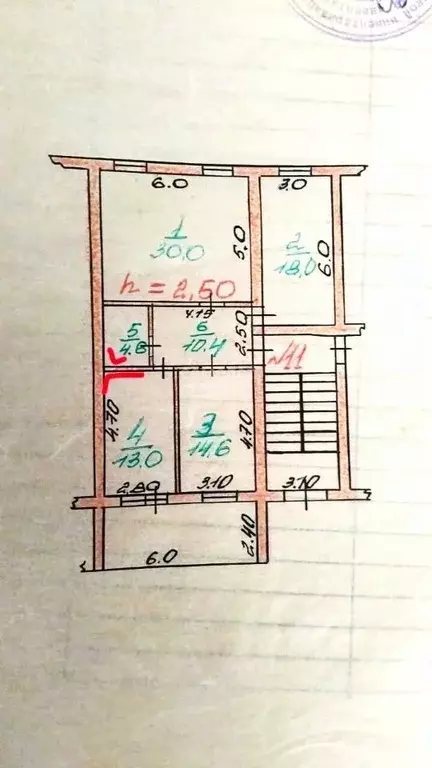 6.0
3.0
1
30.0
5.0
2
18.0
6.0
h = 2,50
4.15
5
4.8
6
10.4
2.50
№11
4.70
4
13.0
3
14.6
4.70
2.80
3.10
3.10
6.0
2.40